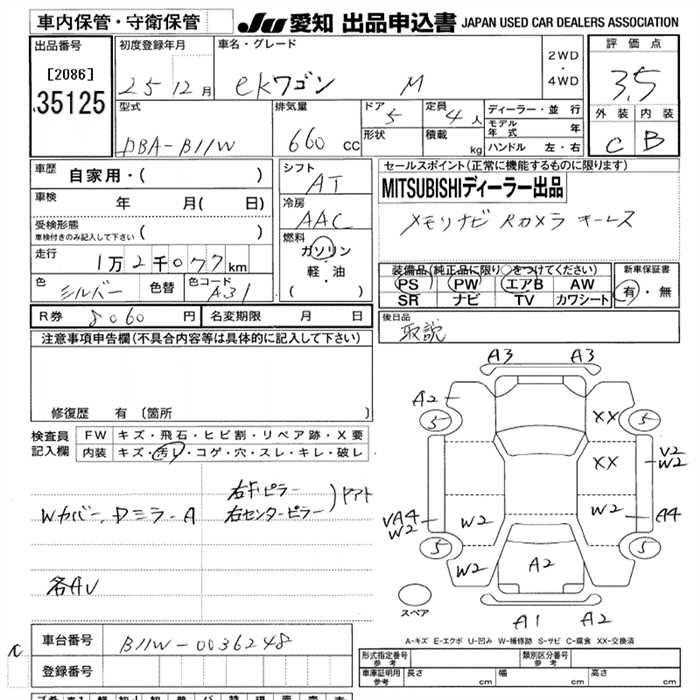 車内保管・守衛保管 JU愛知 出品申込書 JAPAN USED CAR DEALERS ASSOCIATION
出品番号 初度登録年月 車名・グレード 2WD・4WD 評価点
[2086] 25 12月 ekワゴン M 3.5
35125
型式 排気量 ドア 5 定員 4人 ディーラー・並行 外装 内装
DBA-B11W 660cc 形状 積載 kg モデル年式 年 C B
ハンドル 左・右
車歴 自家用・( ) シフト AT セールスポイント(正常に機能するものに限ります)
車検 年 月( 日) 冷房 AAC MITSUBISHIディーラー出品
受検形態 車検付きのみ記入して下さい ( ) 燃料 ガソリン メモリナビ Rカメラ キーレス
走行 1万2千077km 軽・油
( )
色 シルバー 色替 色コード A31
装備品(純正品に限り○をつけてください) 新車保証書
PS PW エアB AW 有・無
SR ナビ TV カワシート
R券 8060円 名変期限 月 日 後日品
取説
注意事項申告欄(不具合内容等は具体的に記入して下さい)
修復歴 有 [箇所 ]
検査員記入欄 FW キズ・飛石・ヒビ割・リペア跡・X要
内装 キズ・汚レ・コゲ・穴・スレ・キレ・破レ
Wカバー、Dミラー A
右Fピラー
右センターピラー
ドアアト
各AU
A3 A3
A2
5 XX 5
XX V2
W2
VA4
W2 W2 W2 A4
5 5
W2 A2
スペア
A1 A2
A-キズ E-エクボ U-凹み W-補修跡 S-サビ C-腐食 XX-交換済
車台番号 B11W-0036248
登録番号
形式指定番号 参考 類別区分番号 参考
車庫証明用 参考 長さ cm 幅 cm 高さ cm